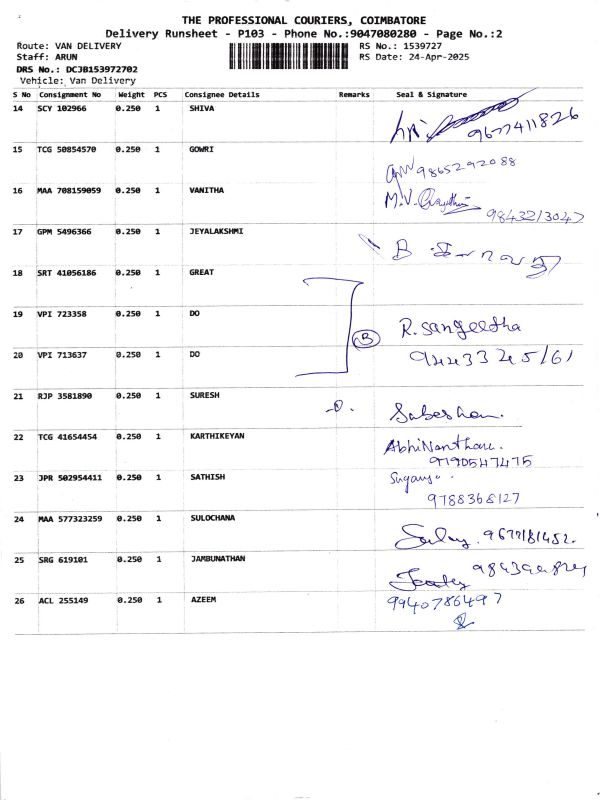 THE PROFESSIONAL COURIERS, COIMBATORE
Delivery Runsheet - P103 - Phone No.:9047080280 - Page No.:2
Route: VAN DELIVERY RS No.: 1539727
Staff: ARUN RS Date: 24-Apr-2025
DRS No.: DCJB153972702
Vehicle: Van Delivery
S No Consignment No Weight PCS Consignee Details Remarks Seal & Signature
14 SCY 102966 0.250 1 SHIVA
9677411826
15 TCG 50854570 0.250 1 GOWRI
9865292088
16 MAA 708159059 0.250 1 VANITHA
M.V.
9843213047
17 GPM 5496366 0.250 1 JEYALAKSHMI
18 SRT 41056186 0.250 1 GREAT
19 VPI 723358 0.250 1 DO
R. Sangeetha
B
20 VPI 713637 0.250 1 DO
9443345161
21 RJP 3581890 0.250 1 SURESH
22 TCG 41654454 0.250 1 KARTHIKEYAN
9790547475
23 JPR 502954411 0.250 1 SATHISH
9788368127
24 MAA 577323259 0.250 1 SULOCHANA
9677181452.
25 SRG 619101 0.250 1 JAMBUNATHAN
26 ACL 255149 0.250 1 AZEEM
9940786497